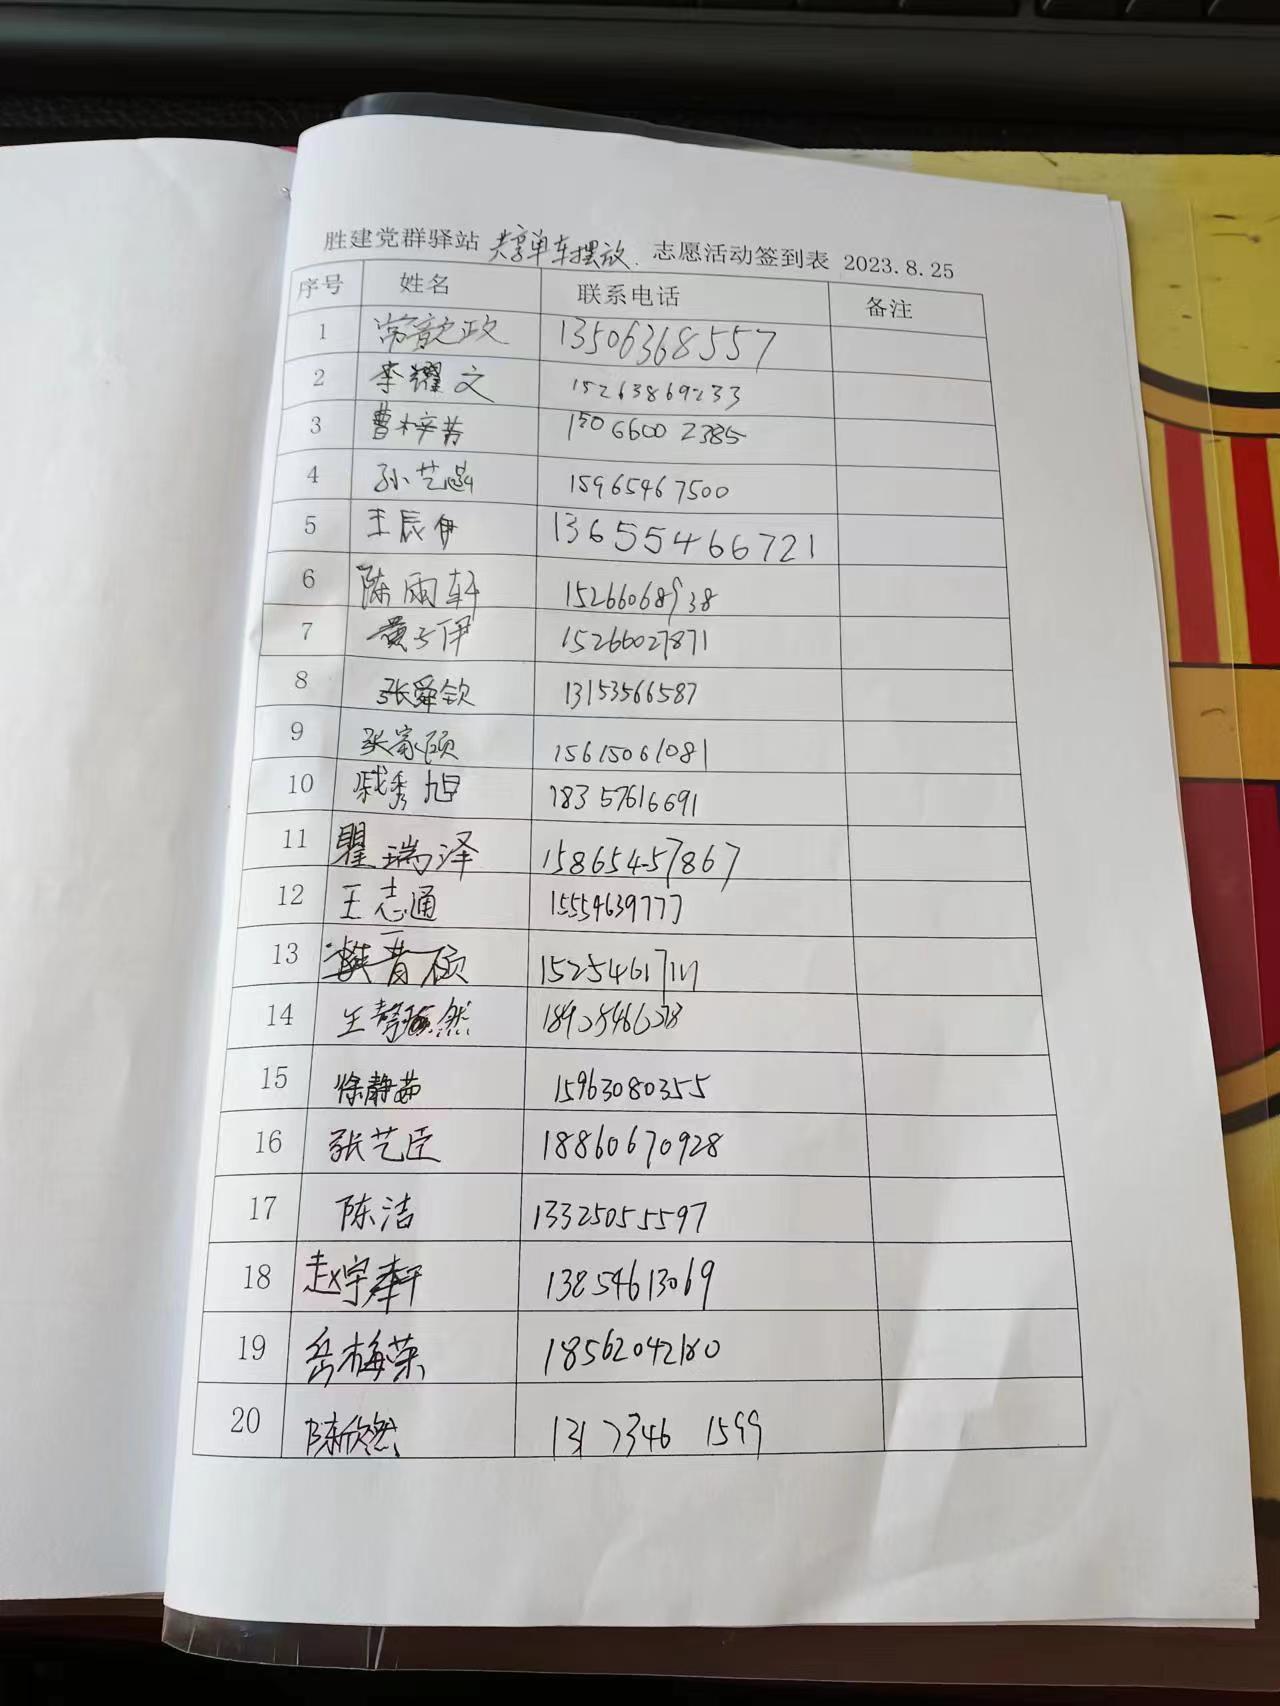 胜建党群驿站 共享单车摆放 志愿活动签到表 2023.8.25
序号 姓名 联系电话 备注
1 常歆政 13506368557
2 李耀文 15263869233
3 曹梓芳 15066002385
4 孙艺涵 15965467500
5 王辰伊 13655466721
6 陈雨轩 15266068938
7 黄子伊 15266027871
8 张舜钦 13153566587
9 张家硕 15615061081
10 臧秀旭 18357616691
11 瞿瑞泽 15865457867
12 王志通 15554639777
13 晋硕
14 王 然
15 徐静茹 15963080355
16 张艺臣 18860670928
17 陈洁 13325055597
18 赵宇轩 13854613069
19 岳梅荣 18562042180
20 陈欣然 13173461599